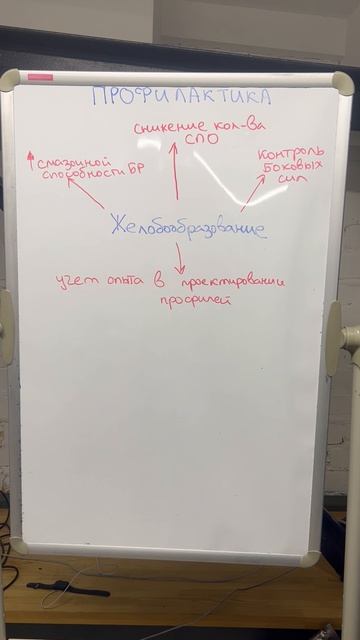 ПРОФИЛАКТИКА
снижение кол-ва
СПО
↑ смазочной
способности БР
контроль
боковых
сил
Желобообразование
учет опыта в проектировании
профилей